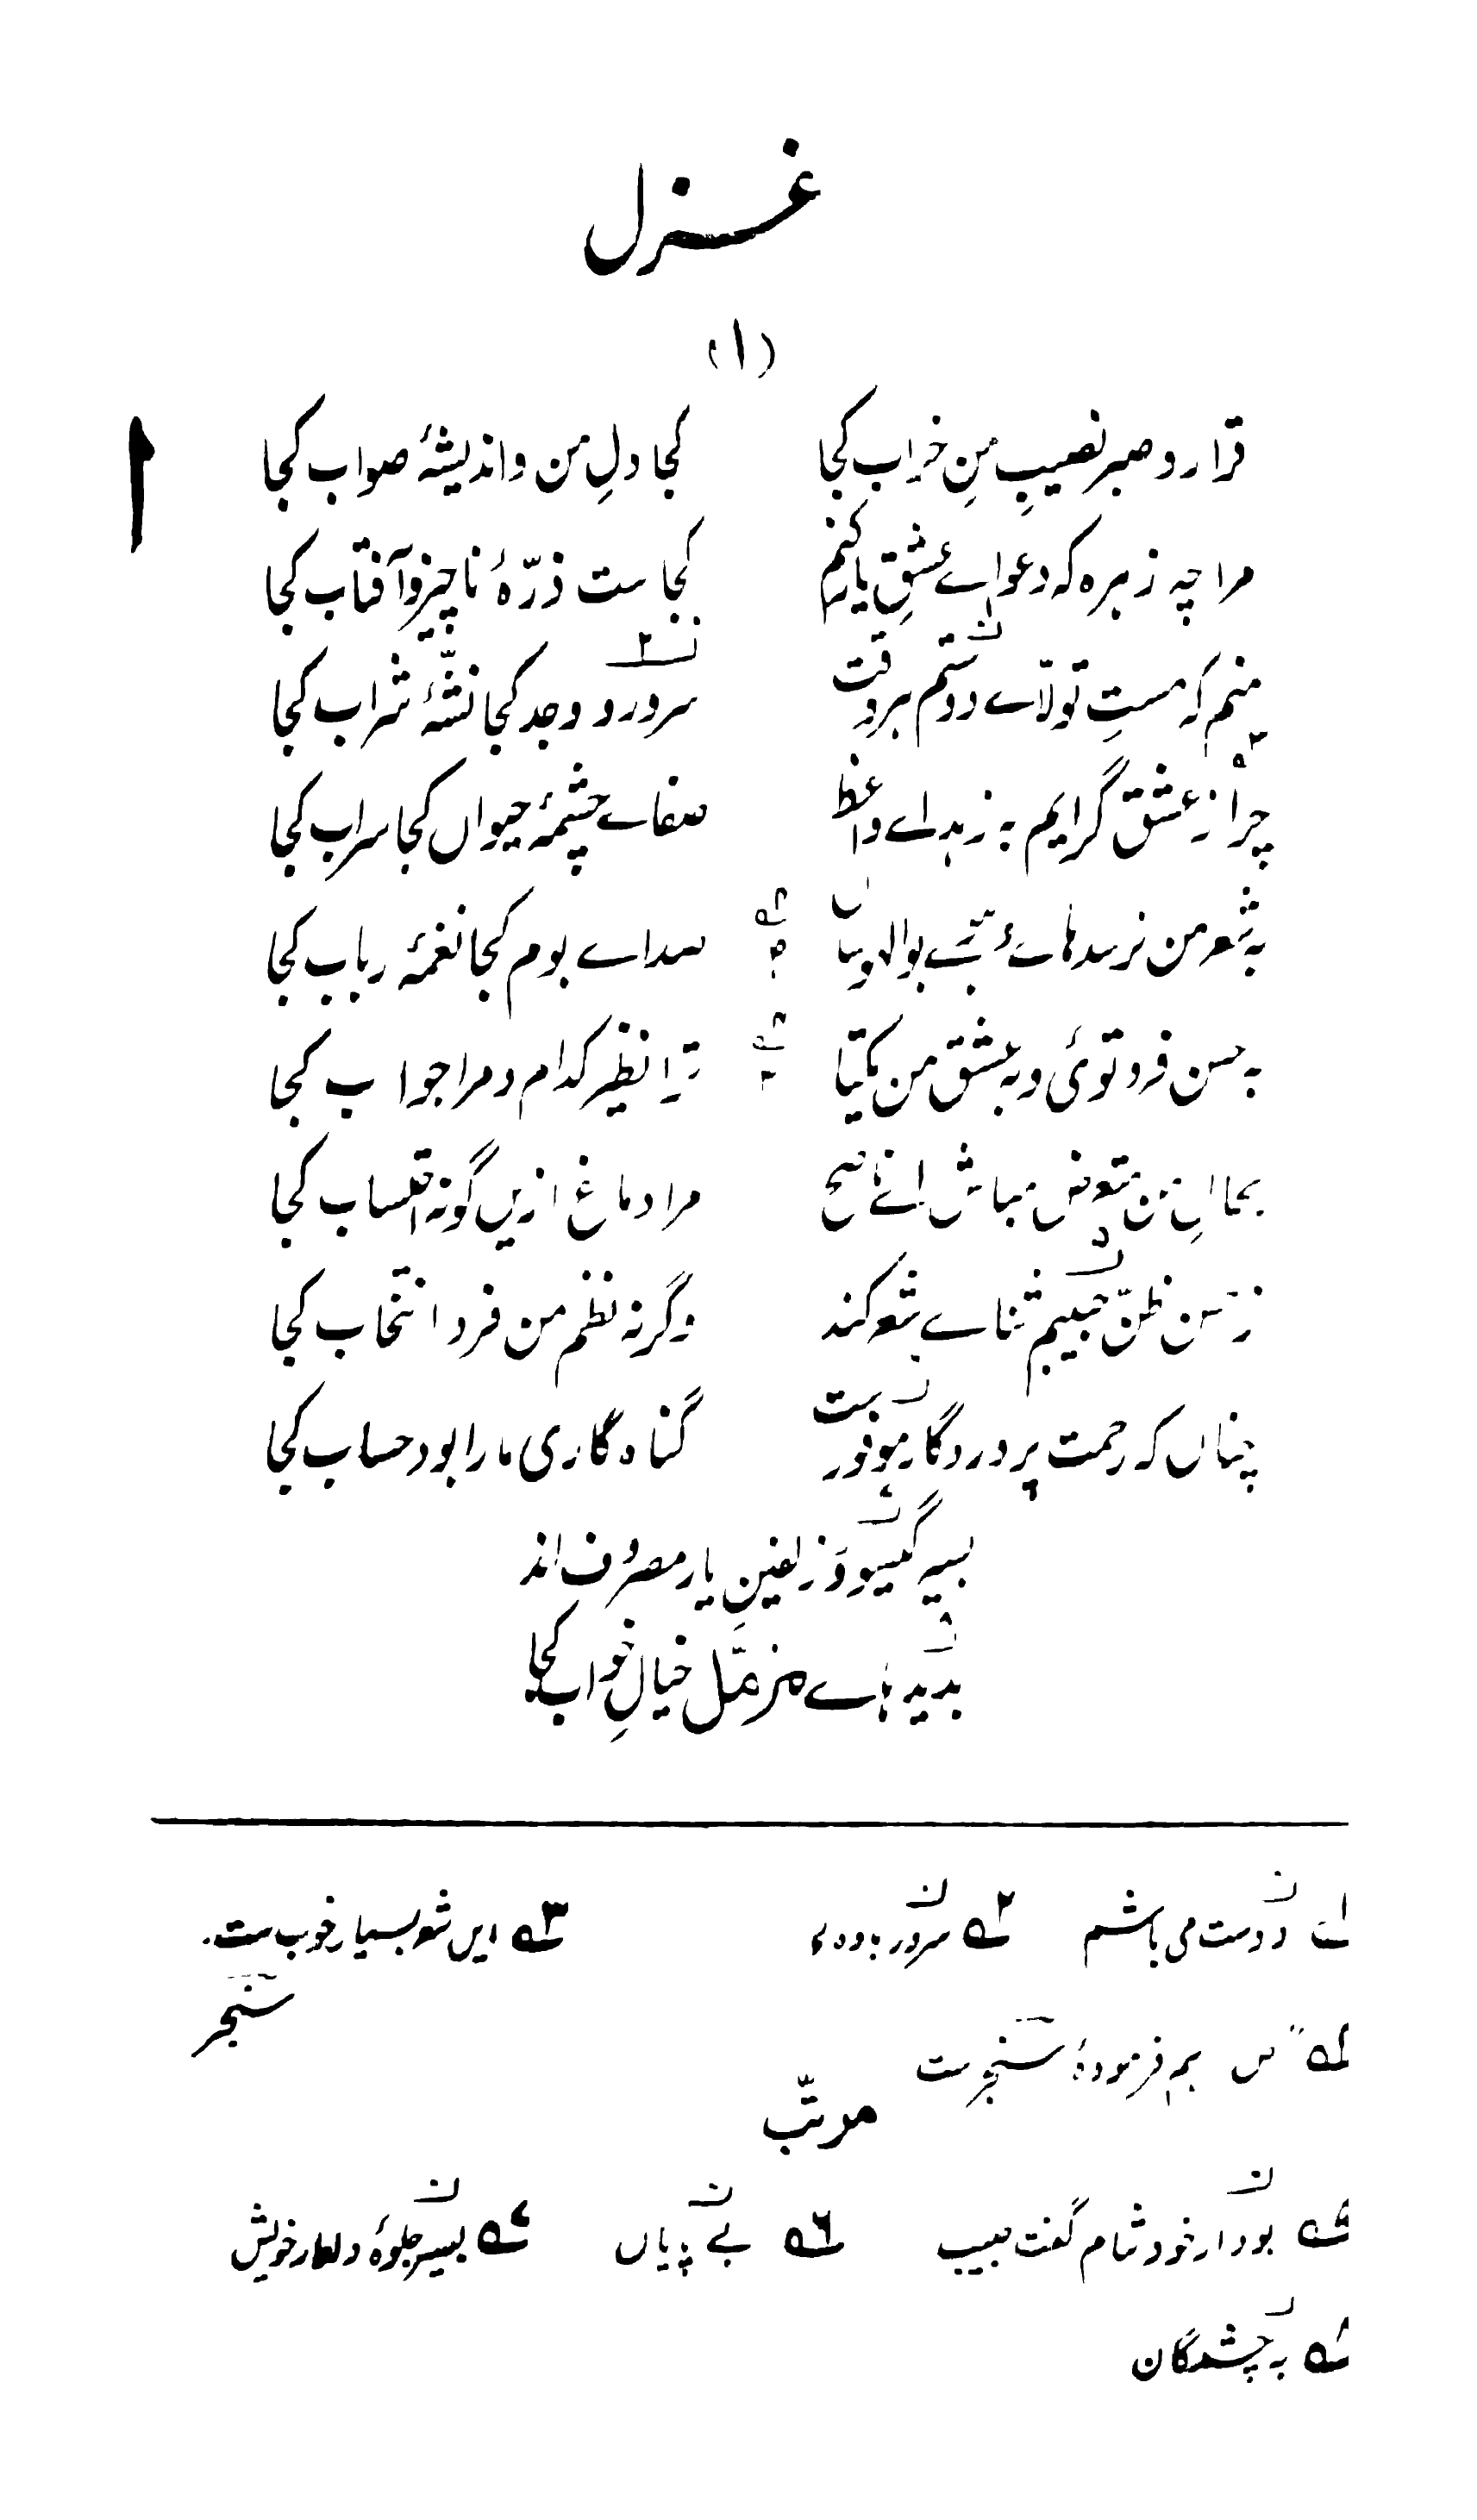 غزل
(۱)
ا
قرار و صبر نصیبِ منِ خراب کجا    کجا دلِ من و اندیشۂ صواب کجا
مرا چہ زہرہ کہ دعواے عشقِ یار کنم    کجاست ذرّۂ ناچیز و آفتاب کجا
منم کہ مستِ تولّاے دوستم ہر وقت    سرور و وجد کجا نشّۂ شراب کجا
چرا ز عشق گرایم بہ زہد اے واعظ    صفاے چشمۂ حیواں کجا سراب کجا
بہ شعر من نرسد    صداے بوم کجا نغمۂ رباب کجا
بہ حسن فرد توئی و بہ عشق من یکتا    ترا نظیر کدام و مرا جواب کجا
بحالِ من متعرض مباش اے ناصح    مرا دماغ ازیں گونہ احتساب کجا
ز حسن ظن حبیبم ثناے شعر کند    وگرنہ نظم من فرد انتخاب کجا
چناں کہ رحمت پروردگار موفور ست    گناہ گاری ما را بود حساب کجا
بسیر گیسو و زلفین یار مصروف اند
بدیدہ ہاے مزمّل خیالِ خواب کجا
۱ دوست می باشم    ۲ سرور بادہ    ۳ ایں شعر بسیار خوب ست۔
سنجر
۴ ہم فرمودۂ سنجر ست
مرتّب
۵ خود ثنام گفت حبیب    ۶ بے پایاں    ۷ بسیر جلوۂ دلدار خویش
۸ بہ چشمگان